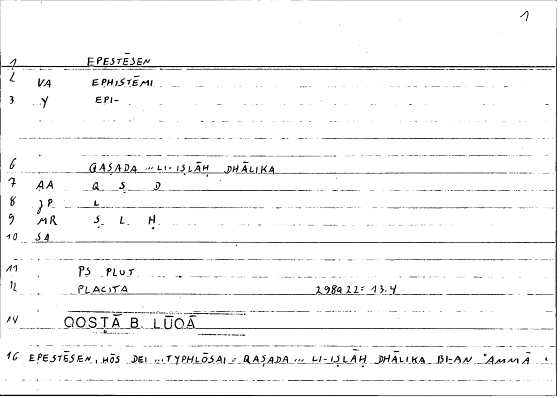 1
1 EPESTĒSEN
2 VA EPHISTĒMI
3 Y EPI-
6 QAṢADA ... LI-IṢLĀḤ DHĀLIKA
7 AA Q Ṣ D
8 JP L
9 MR Ṣ L Ḥ
10 SA
11 PS PLUT
12 PLACITA 298a22= 13.4
14 QOSṬĀ B. LŪQĀ
16 EPESTĒSEN, HŌS DEI ... TYPHLŌSAI = QAṢADA ... LI-IṢLĀḤ DHĀLIKA BI-AN ʿAMMĀ